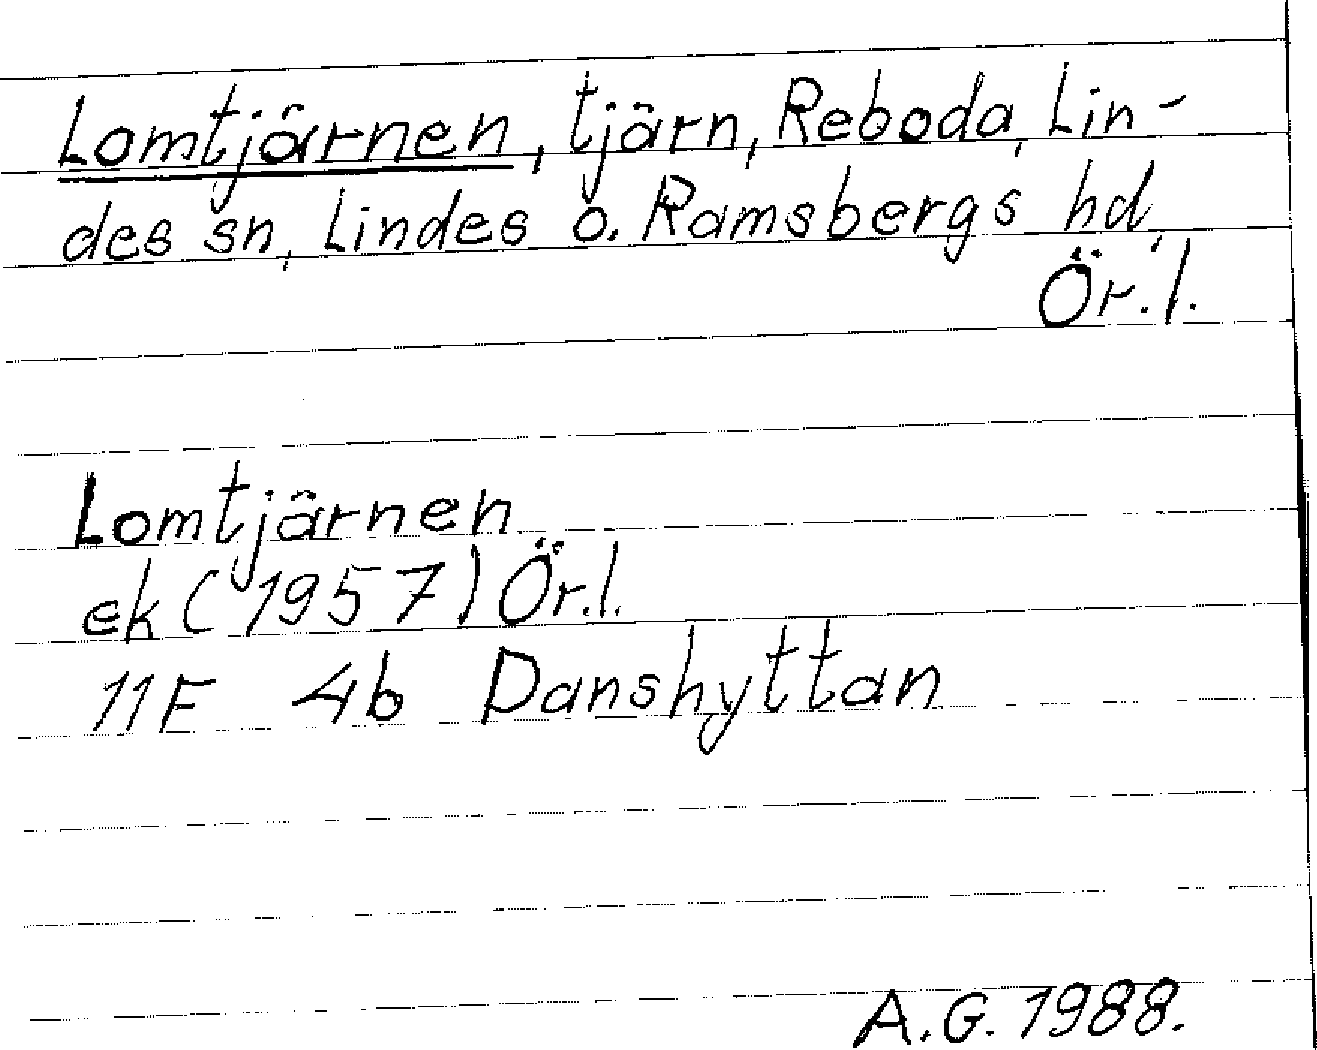 Lomtjärnen, tjärn, Reboda, Lin-
des sn, Lindes o. Ramsbergs hd,
Ör.l.
Lomtjärnen
ek (1957) Ör.l.
11F 4b Danshyttan
A.G. 1988.